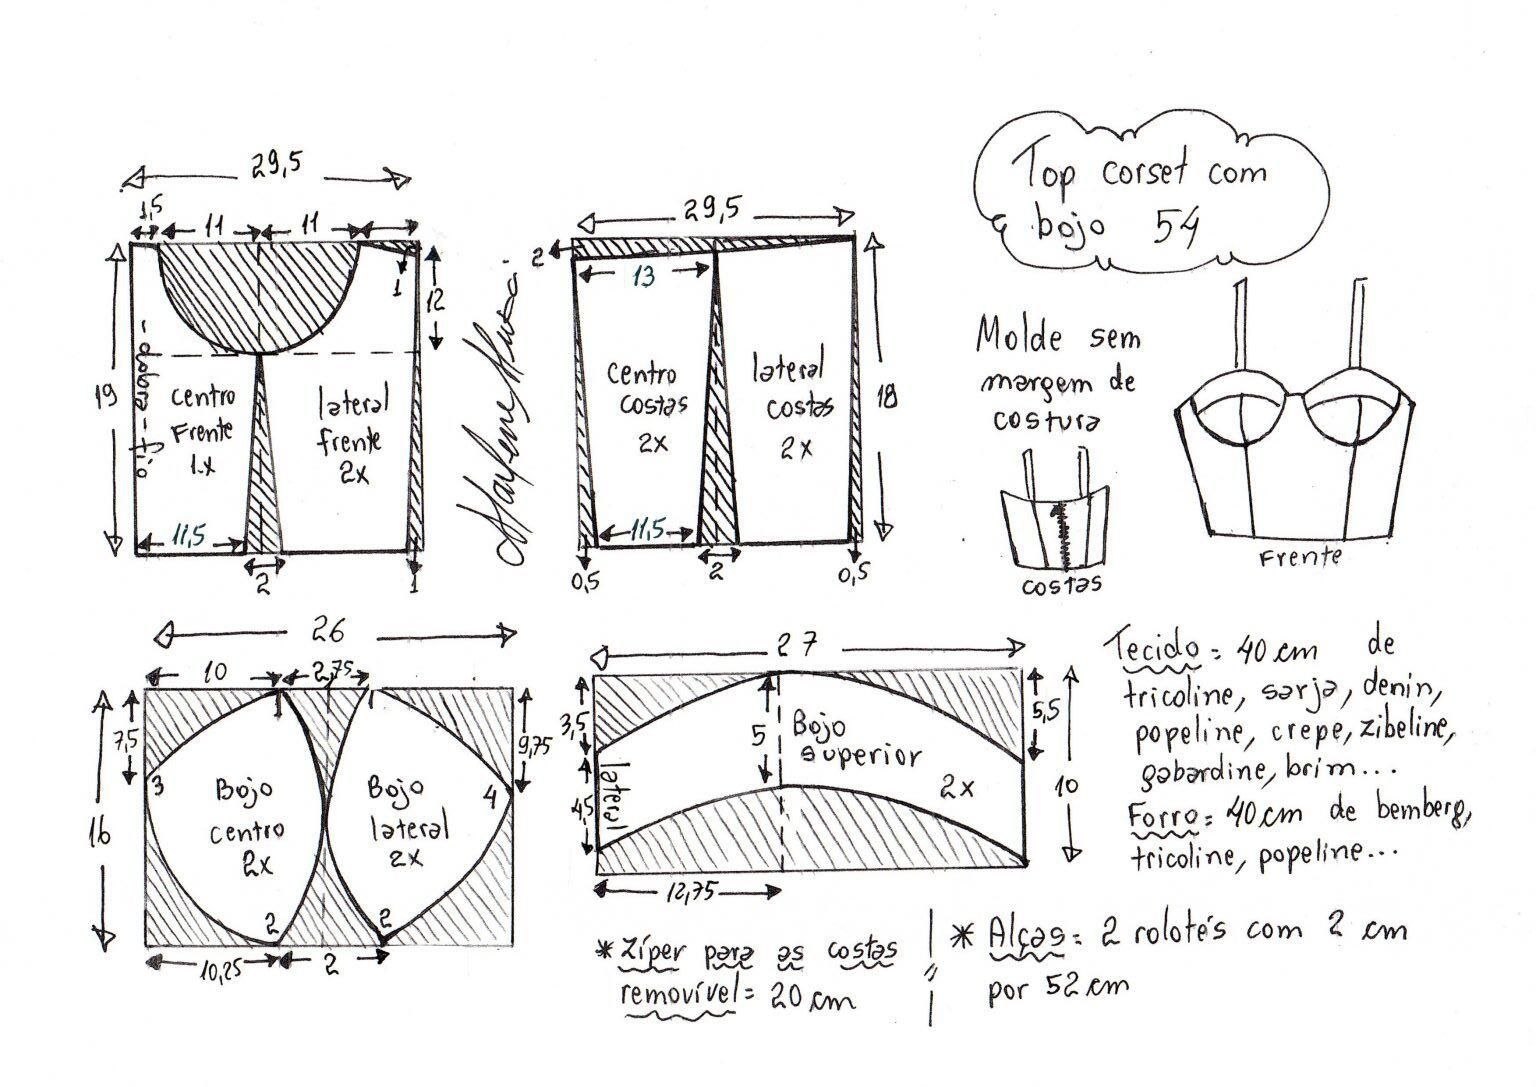 Top corset com
bojo 54
29,5
1,5
11
11
1
12
19
dobra
fio
centro
Frente
1x
lateral
frente
2x
11,5
2
1
29,5
2
13
centro
costas
2x
lateral
costas
2x
18
11,5
0,5
2
0,5
Molde sem
margem de
costura
costas
Frente
26
10
2,75
7,5
9,75
16
1
1
3
4
Bojo
centro
2x
Bojo
lateral
2x
2
2
10,25
2
27
3,5
4,5
lateral
5
Bojo
superior
2x
5,5
10
12,75
Tecido = 40 cm de
tricoline, sarja, denin,
popeline, crepe, zibeline,
gabardine, brim...
Forro = 40cm de bemberg,
tricoline, popeline...
* Zíper para as costas
removível = 20 cm
* Alças = 2 rolotés com 2 cm
por 52 cm